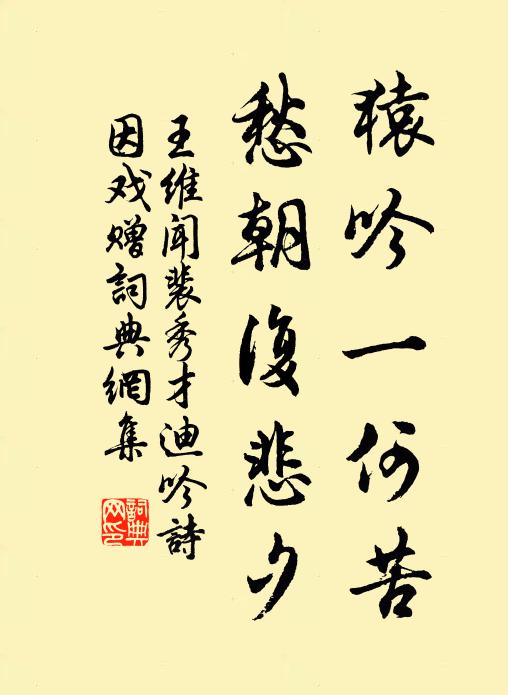 猿吟一何苦
愁朝復悲夕
王維聞裴秀才迪吟詩
因戏赠詞典網集
詞典
网印